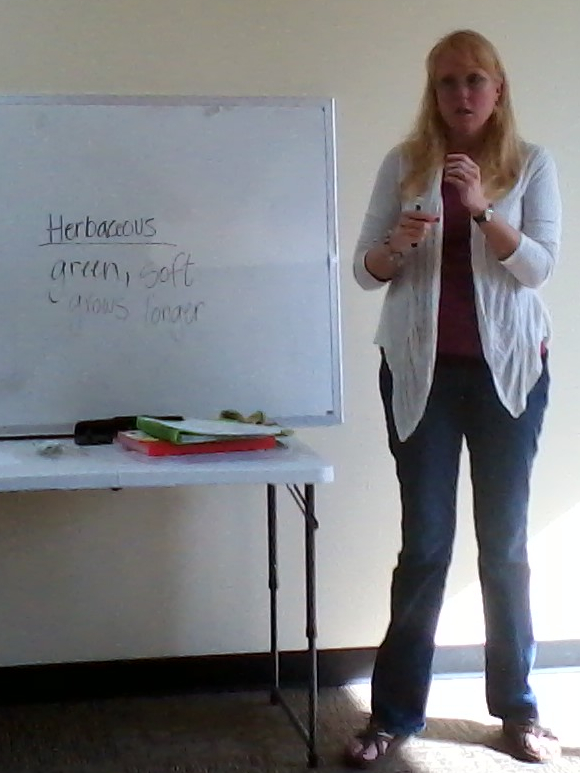 Herbaceous
green, soft
grows longer